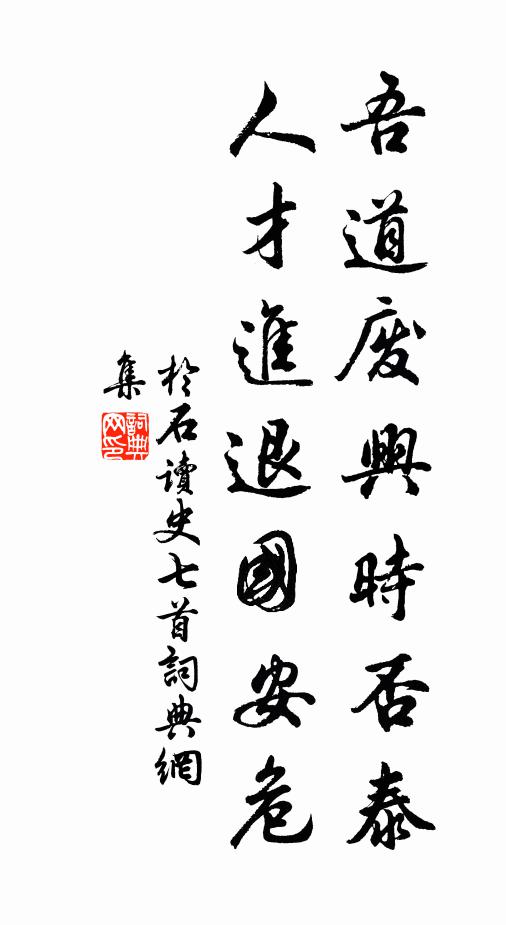 吾道廢興時否泰
人才進退國安危
於石讀史七首詞典網
集
詞典
网印